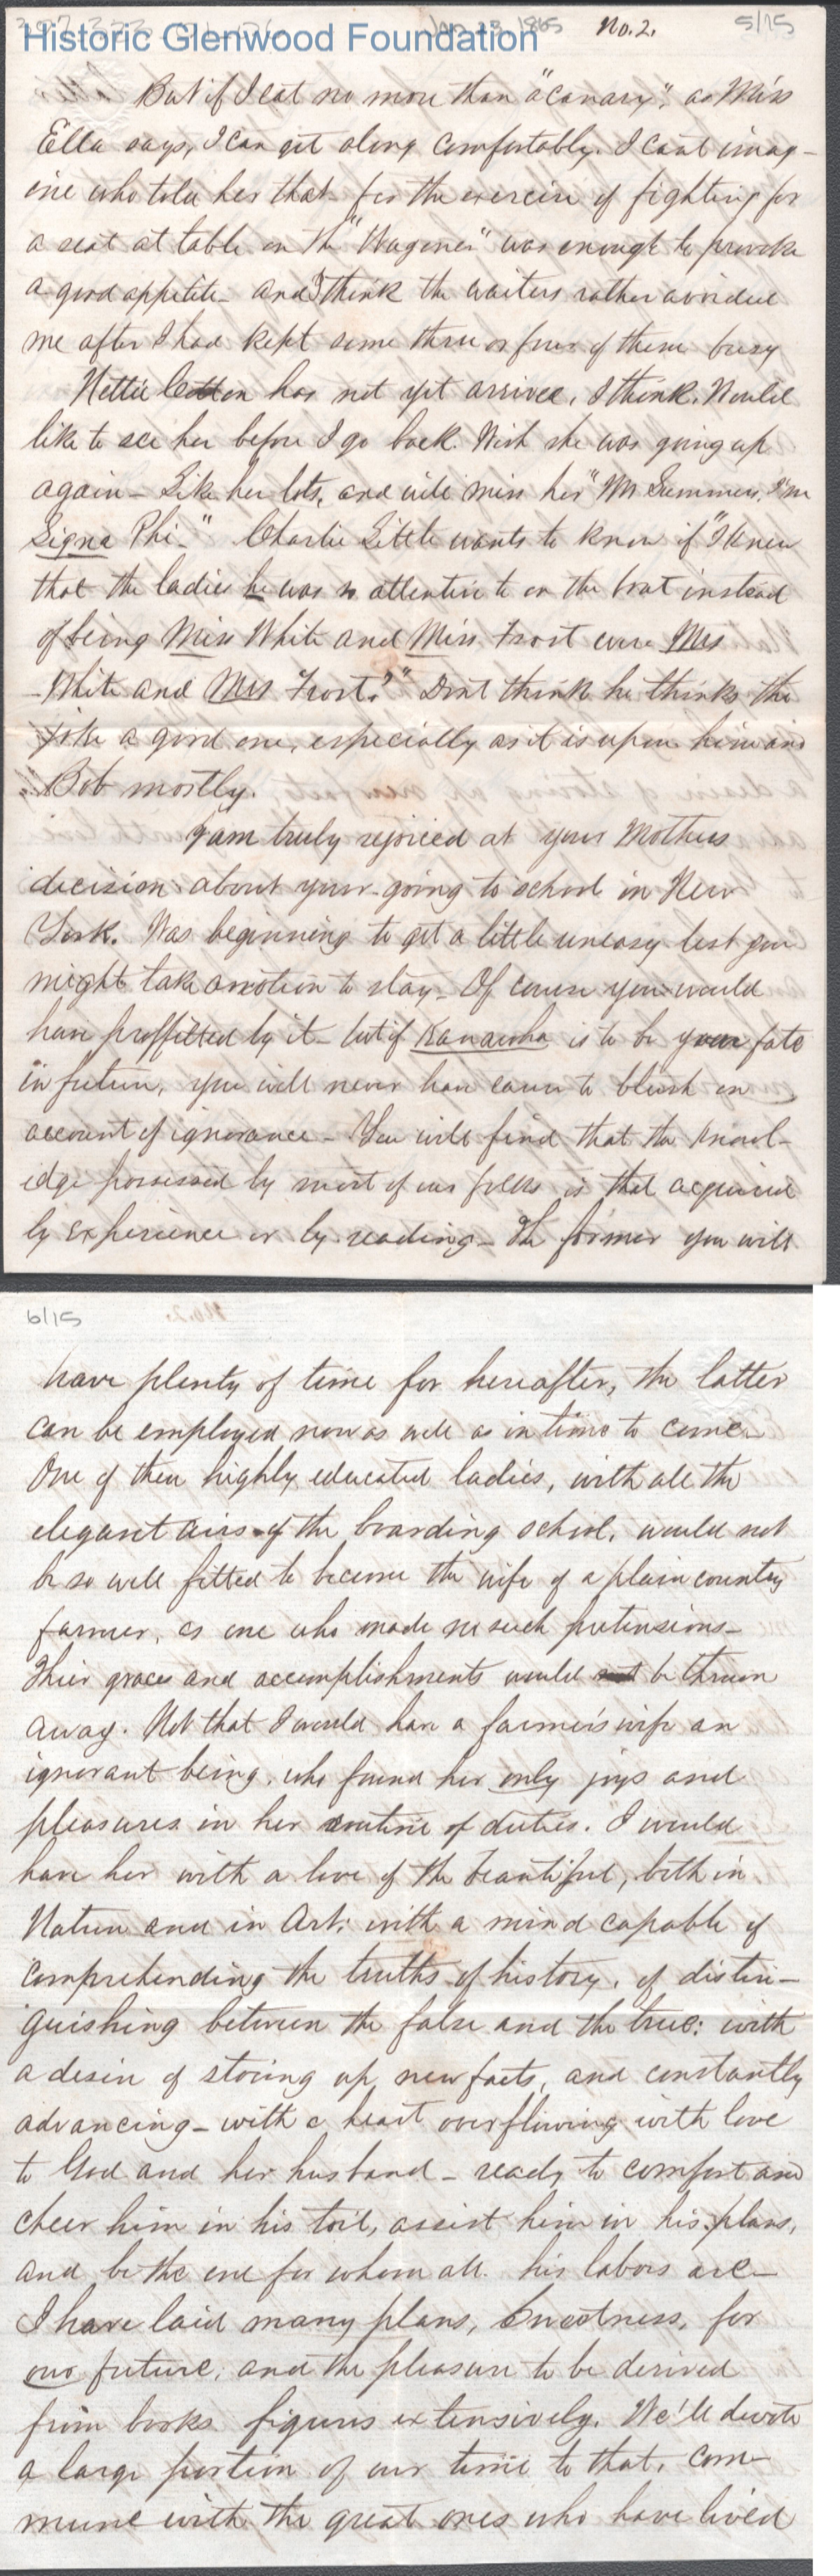 Historic Glenwood Foundation
Jan 23, 1865 No. 2. 5/15
But if I eat no more than "a canary", as Miss
Ella says, I can get along comfortably. I cant imag-
ine who told her that - for the exercise of fighting for
a seat at table on the "Wagoner" was enough to provoke
a good appetite - and I think the waiters rather avoided
me after I had kept some three or four of them busy
Nettie Cotton has not yet arrived, I think. Would
like to see her before I go back. Wish she was going up
again - Like her lots, and will miss her "Mr Summers, I'm
Sigma Phi -" Charlie Little wants to know if "I knew
that the ladies he was so attentive to on the boat instead
of being Miss White and Miss Frost were Mrs
White and Mrs Frost?" Dont think he thinks the
joke a good one, especially as it is upon him and
Bob mostly.
I am truly rejoiced at your Mothers
decision about your going to school in New
York. Was beginning to get a little uneasy lest you
might take a notion to stay - Of course you would
have proffitted by it - but if Kanawha is to be your fate
in future, you will never have cause to blush on
account of ignorance - You will find that the knowl-
edge possessed by most of our folks is that acquired
by experience or by reading - The former you will
6/15
have plenty of time for hereafter, the latter
can be employed now as well as in time to come -
One of these highly educated ladies, with all the
elegant airs of the boarding school, would not
be so well fitted to become the wife of a plain country
farmer, as one who made no such pretensions -
Thier graces and accomplishments would not be thrown
away. Not that I would have a farmer's wife an
ignorant being, who found her only joys and
pleasures in her routine of duties. I would
have her with a love of the beautiful, both in
Nature and in Art; with a mind capable of
comprehending the truths of history, of distin-
guishing between the false and the true: with
a desire of storing up new facts, and constantly
advancing - with a heart overflowing with love
to God and her husband - ready to comfort and
cheer him in his toil, assist him in his plans,
and be the one for whom all his labors are -
I have laid many plans, Sweetness, for
our future, and the pleasure to be derived
from books figures extensively. We'll devote
a large portion of our time to that, com-
mune with the great ones who have lived